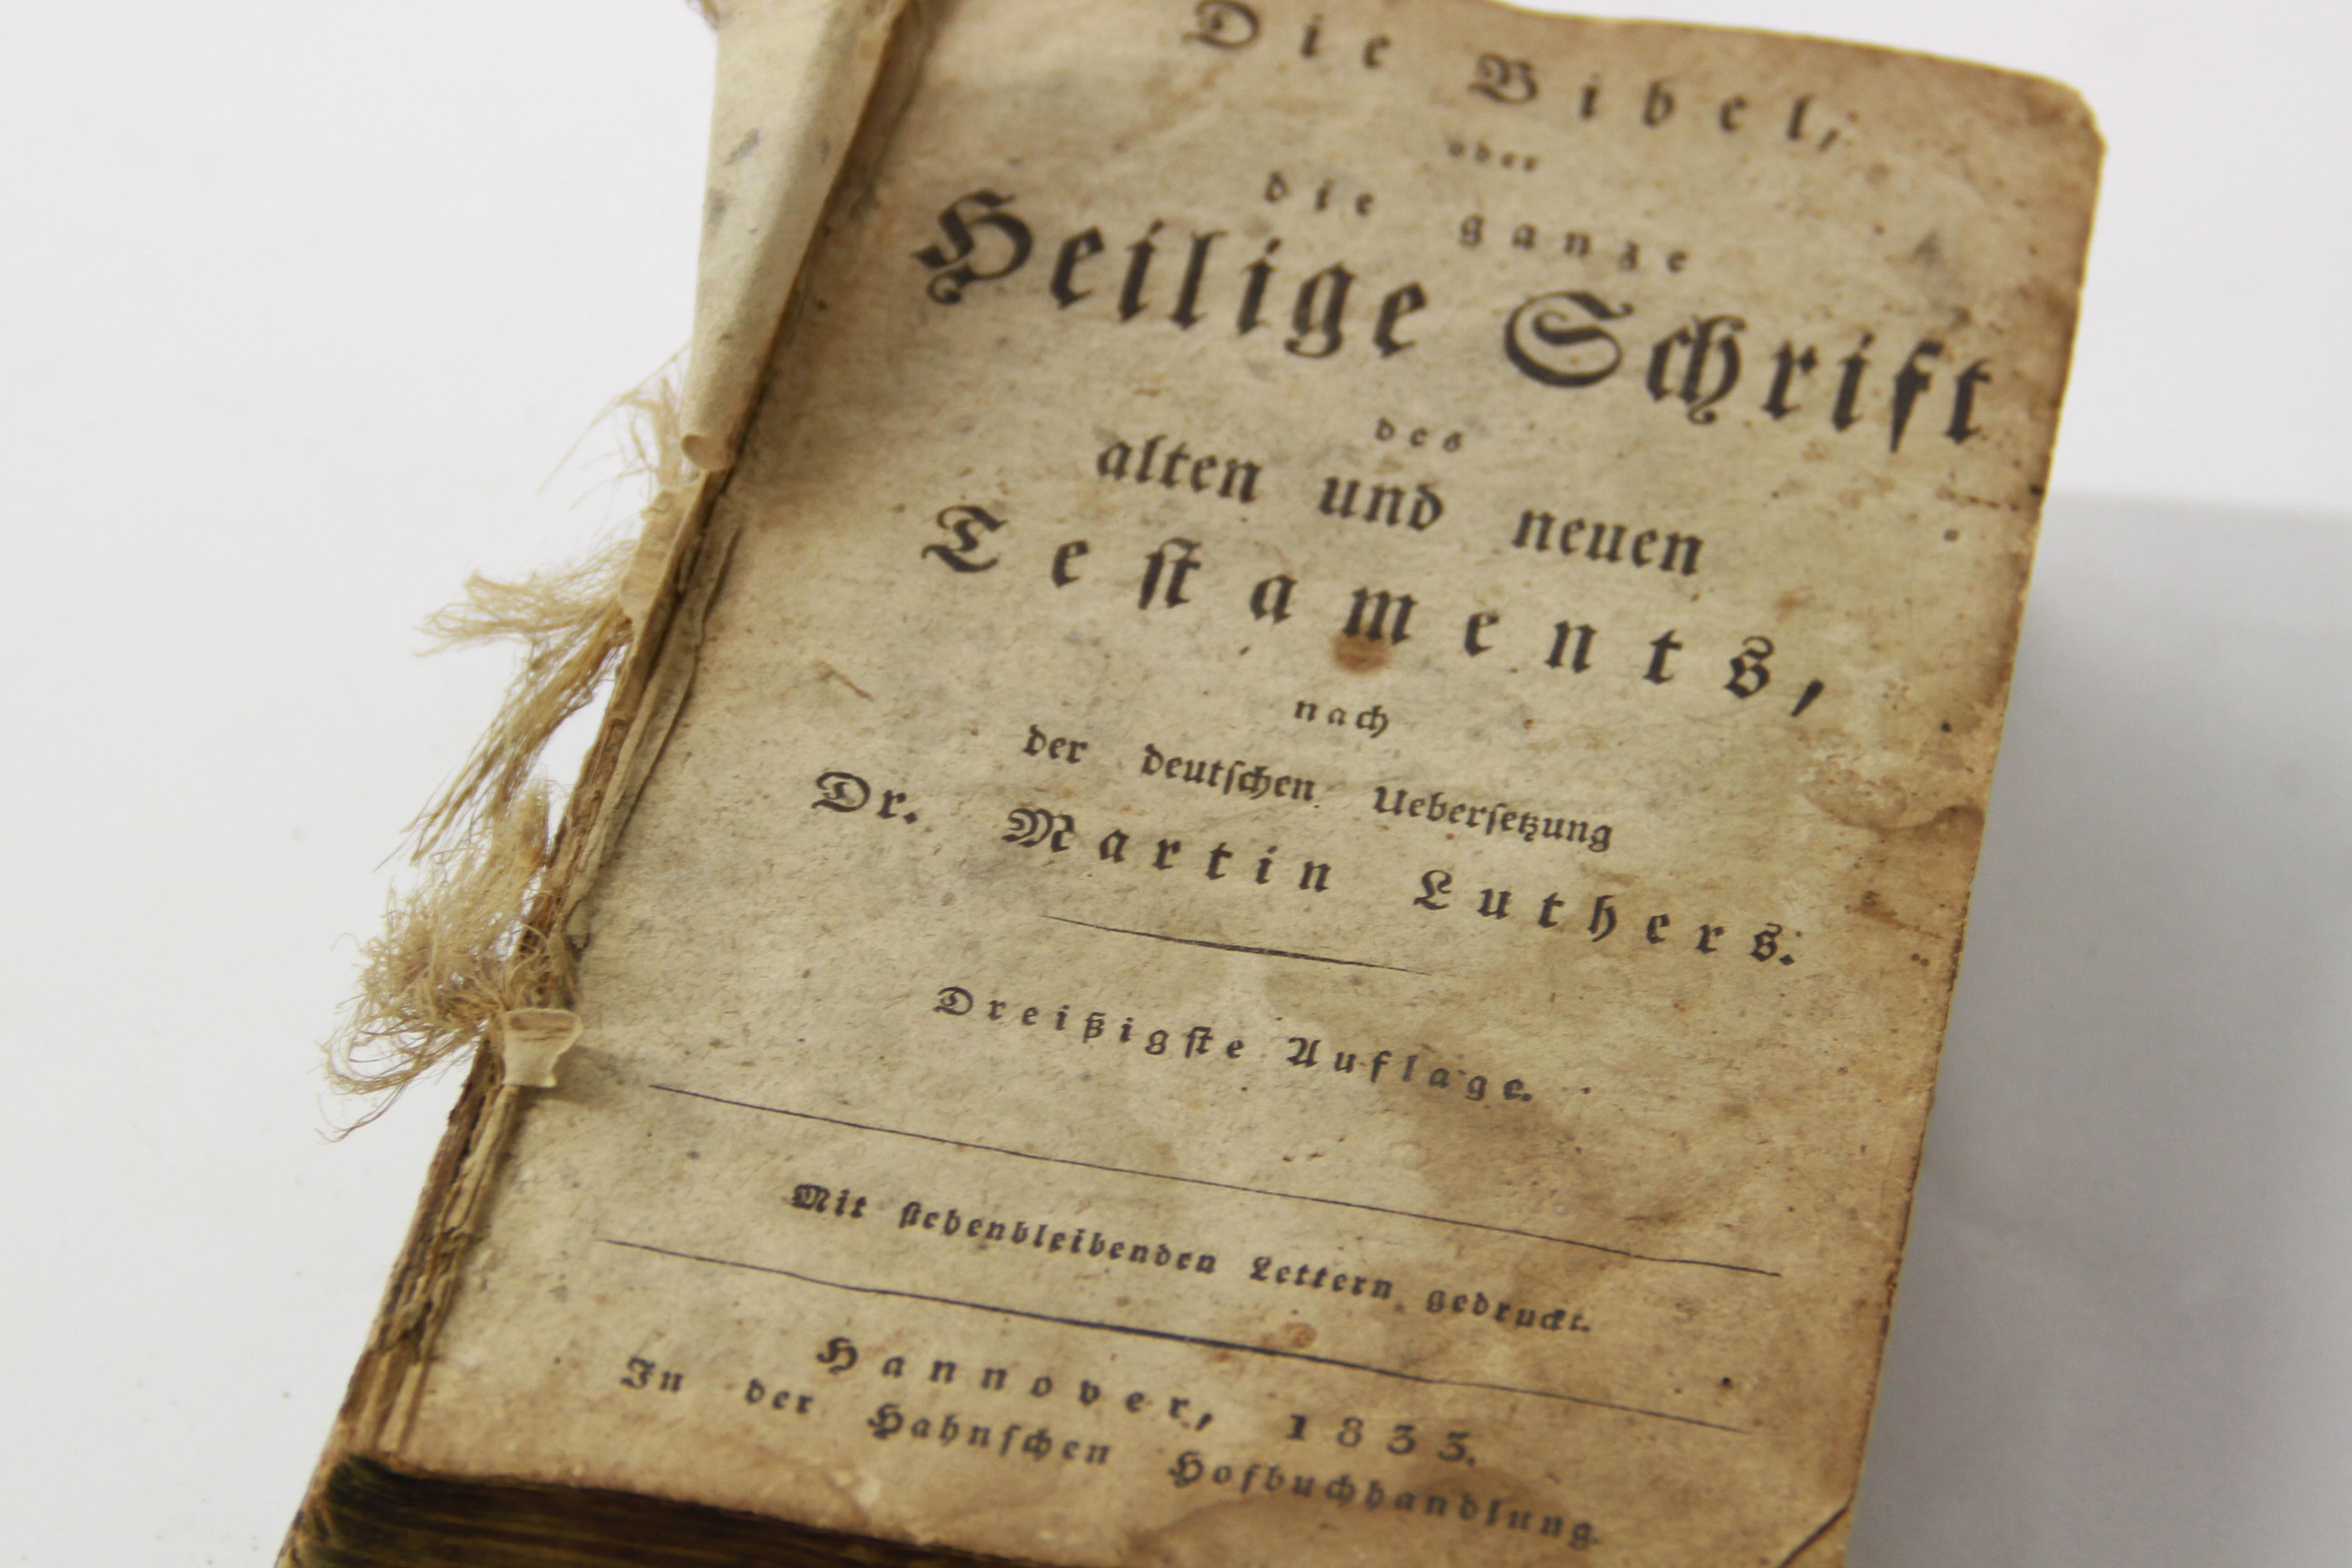 Die Bibel,
oder
die ganze
Heilige Schrift
des
alten und neuen
Teſtaments,
nach
der deutſchen Ueberſetzung
Dr. Martin Luthers.
Dreißigſte Auflage.
Mit ſtehenbleibenden Lettern gedruckt.
Hannover, 1833.
In der Hahnſchen Hofbuchhandlung.